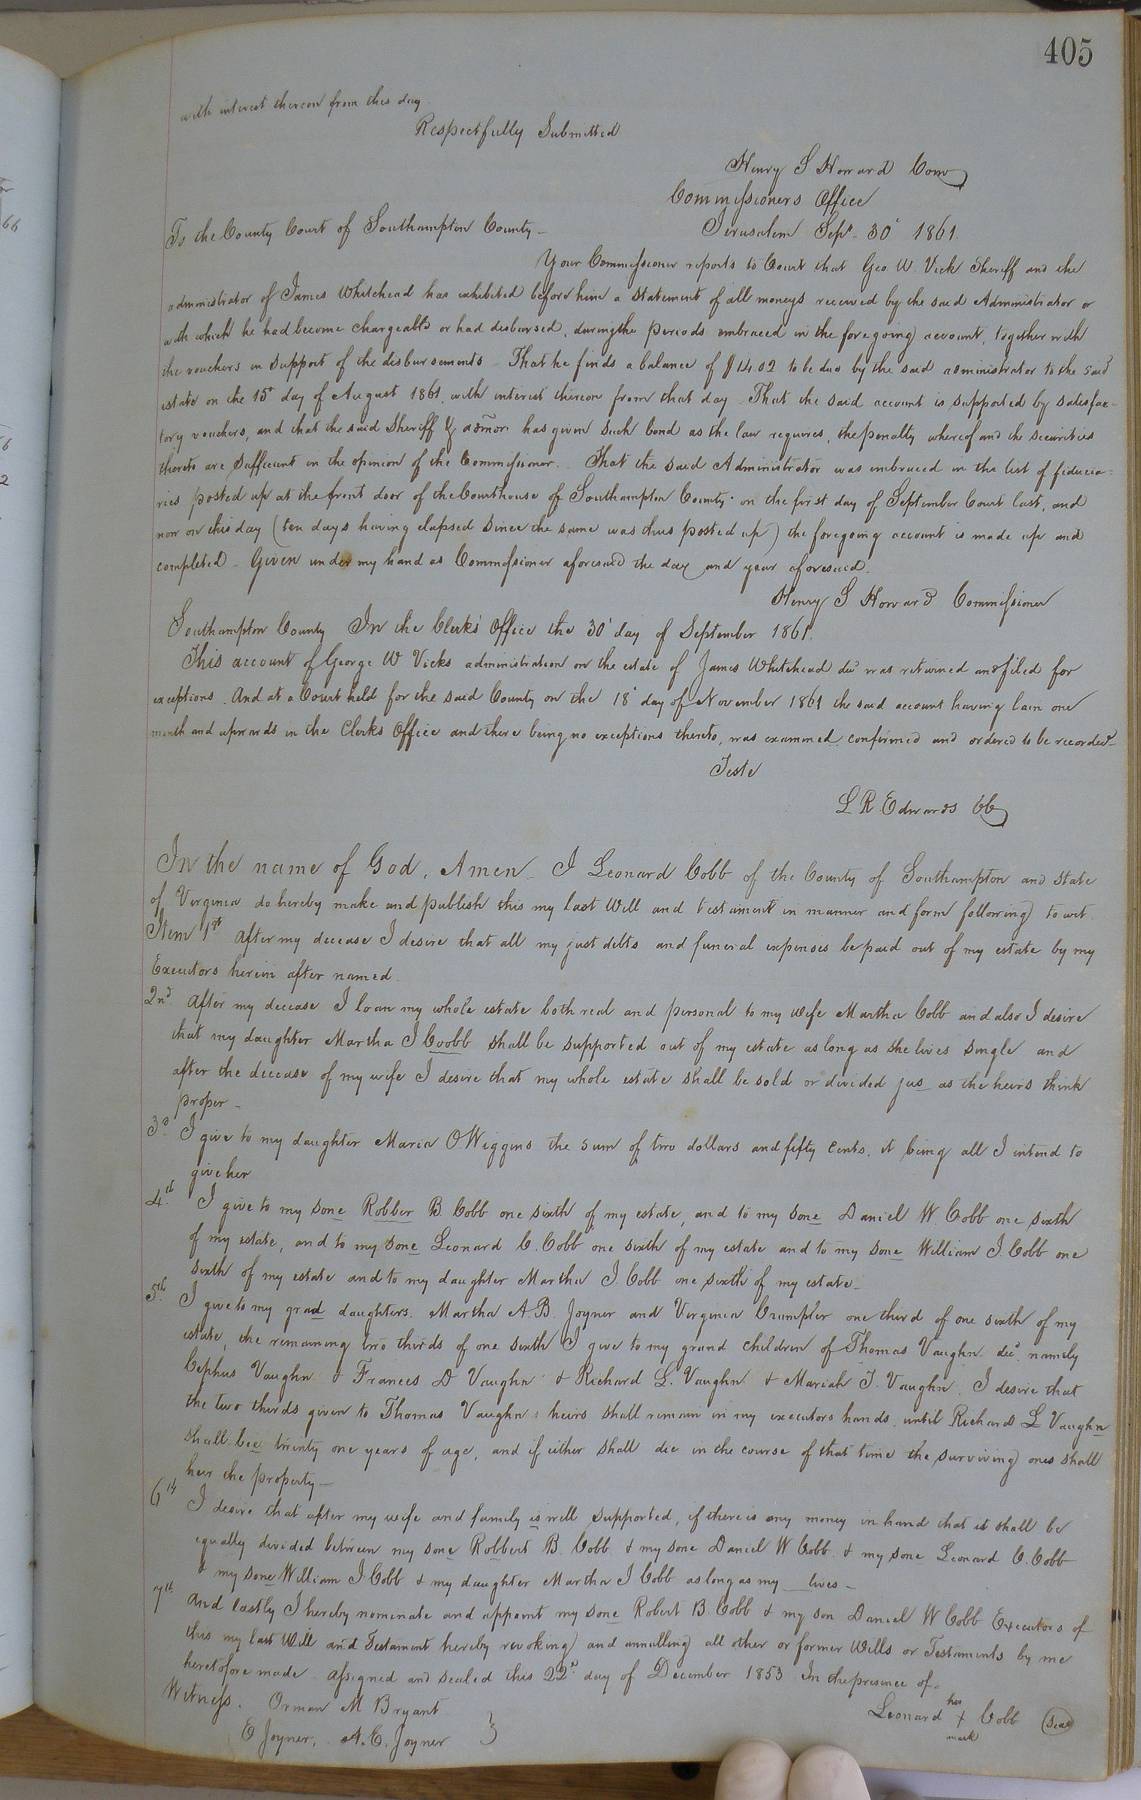 405
with interest thereon from this day
Respectfully Submitted
Henry S Howard Com
Commissioners Office
Jerusalem Sept. 30' 1861.
To the County Court of Southampton County -
Your Commissioner reports to Court that Geo W. Vick Sheriff and the
administrator of James Whitehead has exhibited before him a statement of all moneys received by the said Administrator or
with which he had become chargeable or had disbursed, during the periods embraced in the foregoing account, together with
the vouchers in support of the disbursements - That he finds a balance of $14.02 to be due by the said administrator to the said
estate on the 15' day of August 1861, with interest thereon from that day - That the said account is supported by satisfac-
tory vouchers, and that the said Sheriff & admor has given such bond as the law requires, the penalty whereof and the securities
thereto are sufficient in the opinion of the Commissioner. That the said Administrator was embraced in the list of fiducia-
ries posted up at the front door of the Courthouse of Southampton County on the first day of September Court last, and
now on this day (ten days having elapsed since the same was thus posted up) the foregoing account is made up and
completed - Given under my hand as Commissioner aforesaid the day and year aforesaid.
Henry S Howard Commissioner
Southampton County In the Clerks Office the 30' day of September 1861.
This account of George W Vicks administration on the estate of James Whitehead dec was returned and filed for
exceptions. And at a Court held for the said County on the 18' day of November 1861 the said account having lain one
month and upwards in the Clerks Office and there being no exceptions thereto, was examined confirmed and ordered to be recorded -
Teste
L R Edwards CC
In the name of God, Amen - I Leonard Cobb of the County of Southampton and State
of Virginia do hereby make and publish this my last Will and testament in manner and form following) to wit.
Item 1st After my decease I desire that all my just debts and funeral expenses be paid out of my estate by my
Executors herein after named.
2nd After my decease I loan my whole estate both real and personal to my wife Martha Cobb and also I desire
that my daughter Martha I Coobb shall be supported out of my estate as long as she lives single and
after the decease of my wife I desire that my whole estate shall be sold or divided jus as the heirs think
proper -
3d I give to my daughter Maria O Wiggins the sum of two dollars and fifty cents, it being all I intend to
give her
4th I give to my sone Robber B. Cobb one sixth of my estate, and to my sone Daniel W Cobb one sixth
of my estate, and to my sone Leonard C. Cobb one sixth of my estate and to my sone William I. Cobb one
sixth of my estate and to my daughter Martha I. Cobb one sixth of my estate -
5th I give to my grad daughters. Martha A. B. Joyner and Virginia Crumpler one third of one sixth of my
estate, the remaining two thirds of one sixth I give to my grand children of Thomas Vaughn decd namely
Cephus Vaughn & Frances D Vaughn & Richard L. Vaughn & Mariah T. Vaughn. I desire that
the two thirds given to Thomas Vaughn's heirs shall remain in my executors hands until Richard L Vaughn
shall bee twenty one years of age, and if either shall die in the course of that time the surviving) ones shall
heir the property -
6th I desire that after my wife and family is well supported, if there is any money in hand that it shall be
equally divided between my sone Robbert B. Cobb & my sone Daniel W Cobb & my sone Leonard C. Cobb
& my sone William I Cobb & my daughter Martha I Cobb as long as my __ lives -
7th And lastly I hereby nominate and appoint my sone Robert B. Cobb & my son Daniel W Cobb Executors of
this my last Will and Testament hereby revoking) and annulling) all other or former Wills or Testaments by me
heretofore made. Assigned and sealed this 22d day of December 1853 In the presence of.
Witness. Orman M Bryant
E Joyner, A. C. Joyner }
Leonard his X mark Cobb Seal